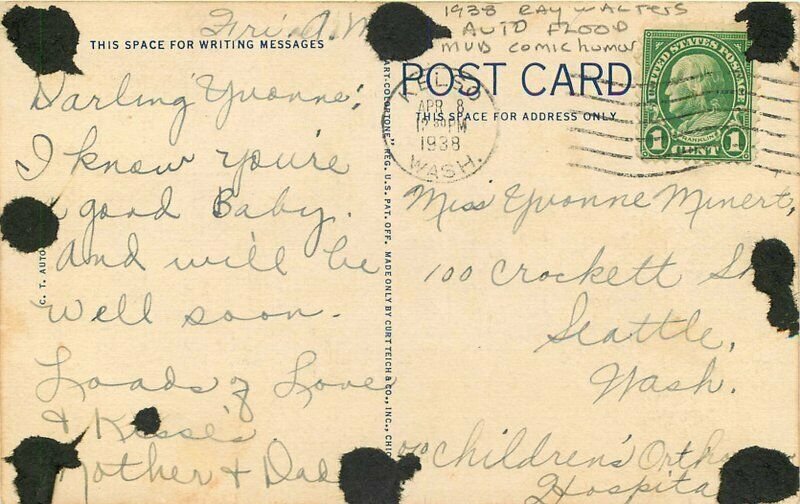 Fri. A.M
1938 RAY WALTERS
AUTO FLOOD
MUD comic humor
THIS SPACE FOR WRITING MESSAGES
POST CARD
THIS SPACE FOR ADDRESS ONLY
KELSO
APR 8
12 30 PM
1938
WASH.
UNITED STATES POSTAGE
FRANKLIN
1 CENT 1
Darling Yvonne:
I know you're
a good Baby.
And will be
well soon.
Loads of Love
& Kisse's
Mother & Dad
C. T. AUTO
ART-COLORTONE" REG. U.S. PAT. OFF. MADE ONLY BY CURT TEICH & CO., INC., CHIC
Miss Yvonne Minert,
100 Crockett St
Seattle,
Wash.
c/o Children's Ortho
Hospita